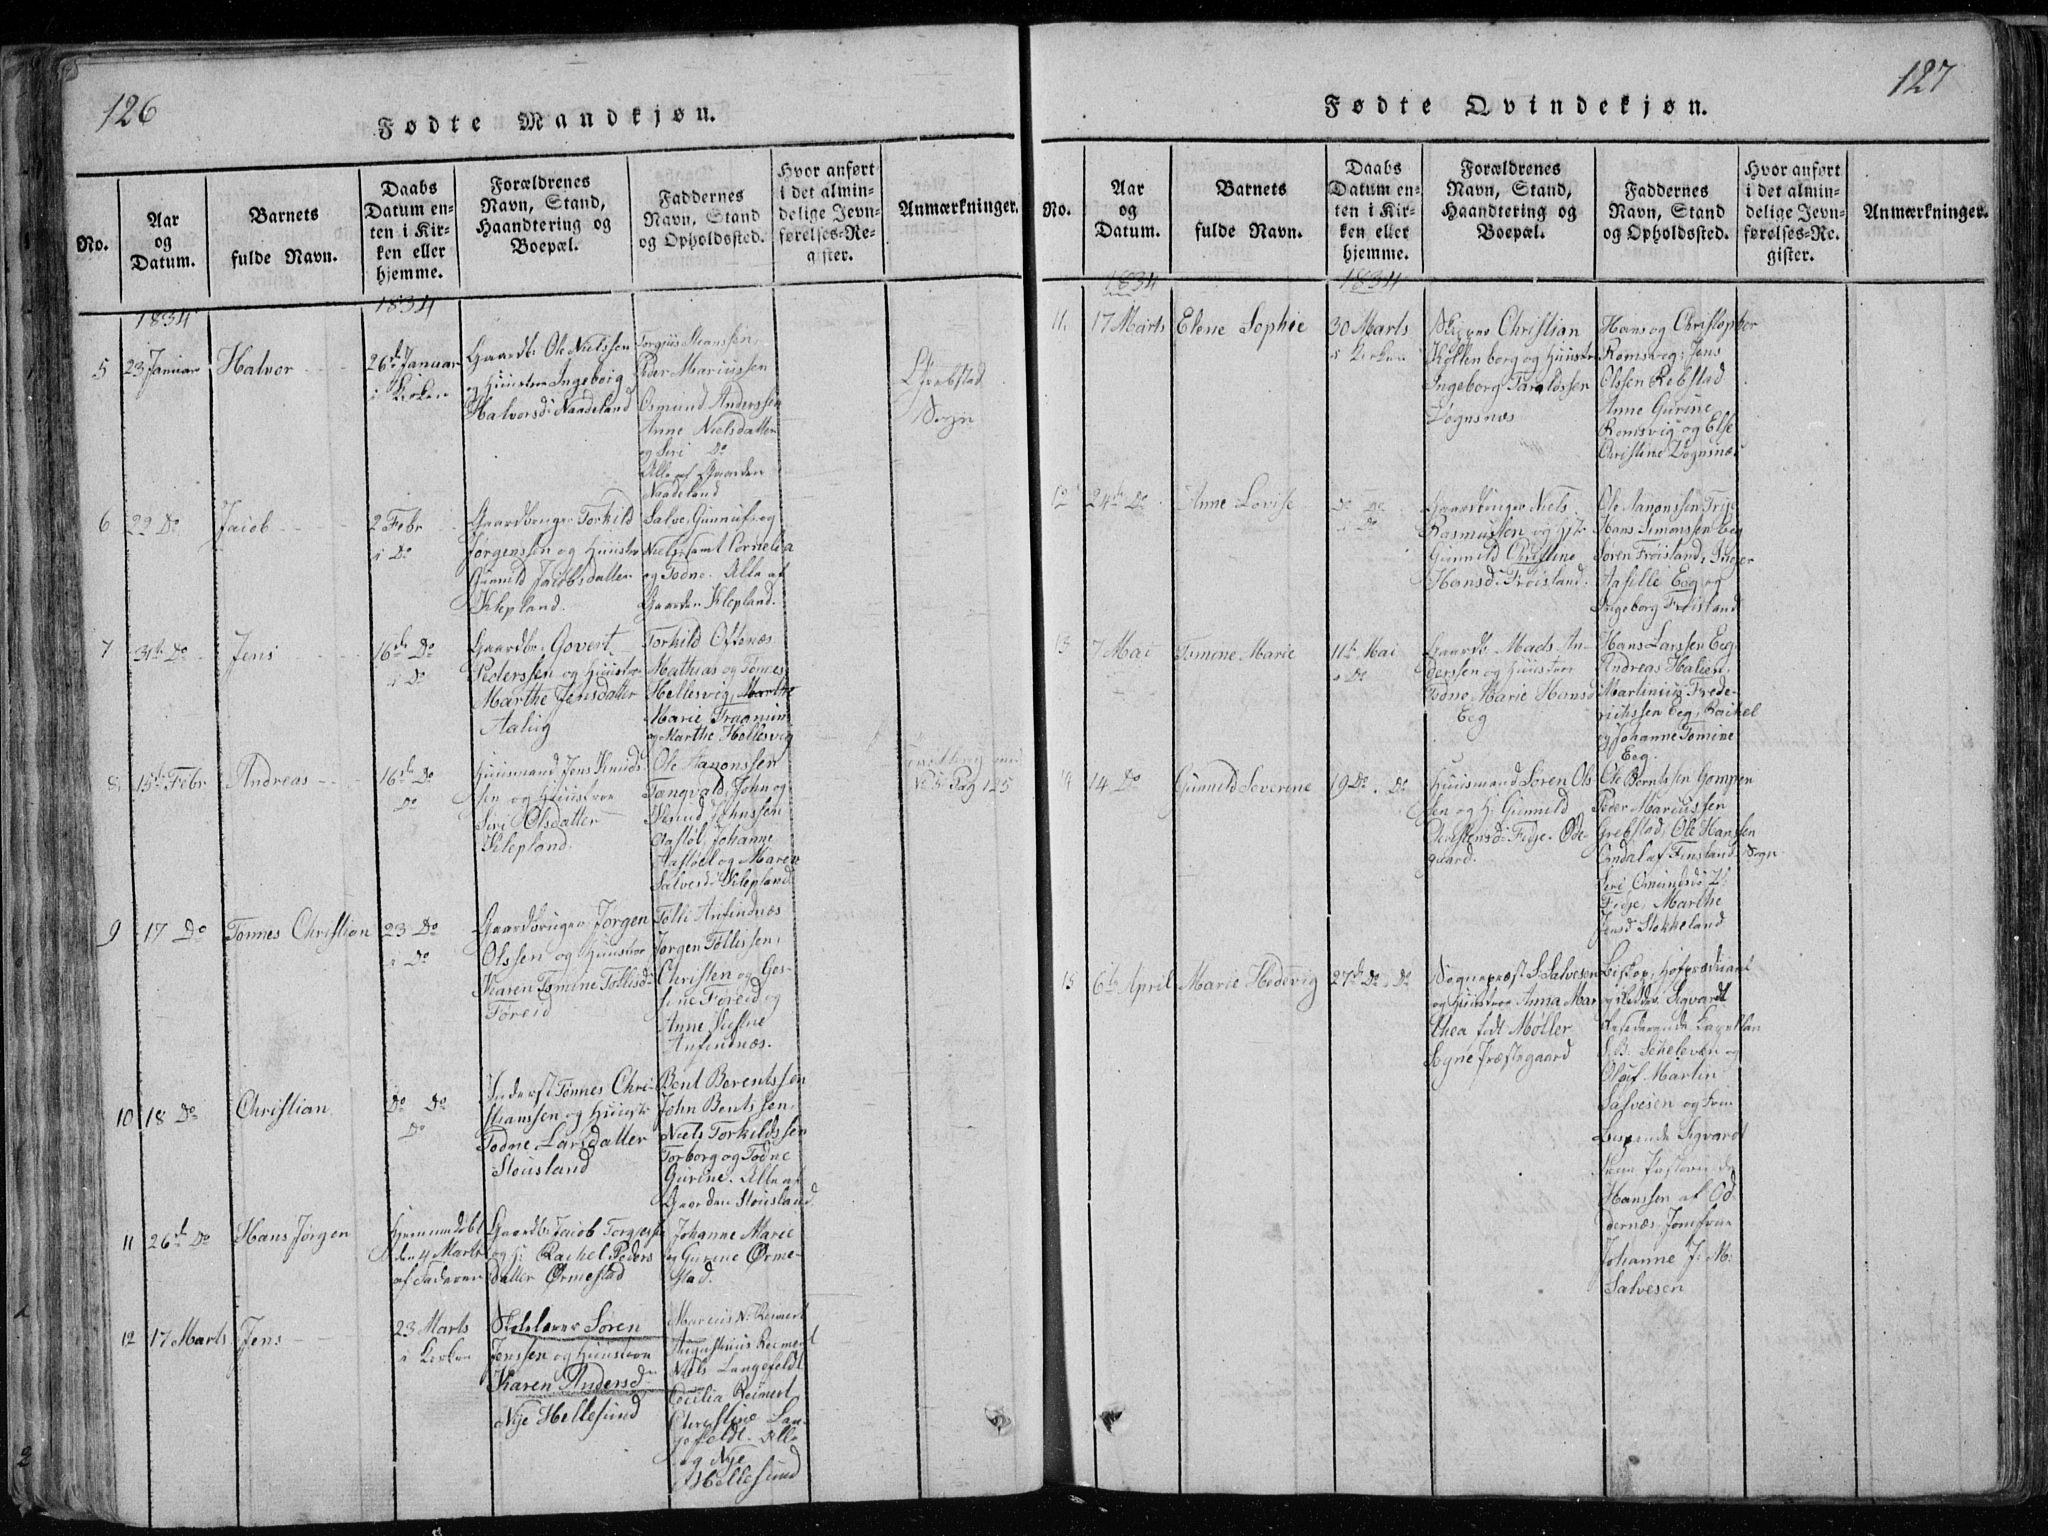 126
Fødte Mandkjøn.
No.
Aar
og
Datum.
Barnets
fulde Navn.
Daabs
Datum en-
ten i Kir-
ken eller
hjemme.
Forældrenes
Navn, Stand,
Haandtering og
Boepæl.
Faddernes
Navn, Stand
og Opholdssted.
Hvor anført
i det almin-
delige Jevn-
førelses-Re-
gister.
Anmærkninger.
1834
1834
5
23 Januar
Halvor
26de Januar
i Kirken
Gaardbr Ole Nielssen
og Huustroe Ingeborg
Halvorsd: Naadeland
Torgius Steanssen,
Peder Mariussen
Osmund Anderssen
Anne Nielsdatter
og Siri Do
Alle af Gaarden
Naadeland
Grebstad
Sogn
6
22 Do
Jacob
2 Febr
i Do
Gaardbruger Torkild
Jørgenssen og Huustro
Gunnild Jacobsdatter
Klepland.
Salve, Gunnuf og
Niels, samt Cornelia
og Todne. Alle af
Gaarden Klepland.
7
31te Do
Jens
16de Do
i Do
Gaardbr. Govert
Pederssen og Huustroe
Marthe Jensdatter
Aalvig
Torkild Oftenæs
Mathias og Tønnes
Hellesvig, Marthe
Marie
og Marthe Hellesvig
8
15de Febr
Andreas
16de Do
Do
Huusmand Jens Knuds
sen og Huustroe
Siri Olsdatter
Klepland.
Ole Aanonssen
Tangvald, John og
Knud Johnssen
Aastøl, Johanne
Aastøel og Maren
Salvesd: Klepland
No 5 Pag 125
9
17 Do
Tønnes Christian
23 Do
i Do
Gaardbruger Jørgen
Olssen og Huustroe
Karen Tomine Tollisd:
Føreid
Tolli Anfindnæs
Jørgen Tollissen,
Christen og Ges-
sine Føreid og
Anne
Anfindnæs.
10
18 Do
Christian
Do Do
Do
Inderst Tønnes Chri-
stianssen og Huustr
Todne Larsdatter
Stousland
Bent Berentssen
John Bentssen,
Niels Torkildssen
Torborg og Todne
Gurine. Alle af
Gaarden Stousland
11
26de Do
Hans Jørgen
Hjemmedøbt
den 4 Marts
af Faderen
Gaardbr Jacob Torgiess
og H: Rachel Peders
datter Ørmestad
Johanne Marie
og Gurine Ørme-
stad.
12
17 Marts
Jens
23 Marts
i Kirken
Skolelærer Søren
Jenssen og Huustroe
Karen Andersd
Nye Hellesund
Marcus N. Reimert
Augustinus Reimert
Niels Langefeldt
Cecilia Reimert
Christine Lan-
gefeldt. Alle
og Nye
Hellesund
127
Fødte Qvindekjøn.
No.
Aar
og
Datum.
Barnets
fulde Navn.
Daabs
Datum en-
ten i Kir-
ken eller
hjemme.
Forældrenes
Navn, Stand,
Haandtering og
Boepæl.
Faddernes
Navn, Stand
og Opholdssted.
Hvor anført
i det almin-
delige Jevn-
førelses-Re-
gister.
Anmærkninger.
1834
1834
11.
17 Marts
Elene Sophie
30 Marts
i Kirken
Christian
Kallenborg og Huustr
Ingeborg Taraldssen
Vognsnæs
Hans og Christopher
Romsvig, Jens
Olssen Rebstad
Anne Gurine
Romsvig og Else
Christine Vognsnæs
12
24de Do
Anne Lovise
Do Do
i Do
Gaardbruger Niels
Rasmussen og Hstr
Gunnild Christine
Hansd: Frøisland.
Ole Aanonssen
Hans Simonssen Eeg
Søren Frøisland, Inger
Aasille Eeg og
Ingeborg Frøisland
13
7 Mai
Tomine Marie
11te Mai
i Do
Gaardb Mads An-
derssen og Huustroe
Todne Marie Hansd
Eeg
Hans Larssen Eeg
Andreas
Martinius Frede-
richssen Eeg, Rachel
og Johanne Tomine
Eeg.
14
14 Do
Gunnild Severine
19 Do. Do
Huusmand Søren Ols
sen og H. Gunnild
Christensd: Fidje. Øde-
gaard.
Ole Berntssen Gompen
Peder Mariussen
Grebstad, Ole Hanssen
af Finsland Sogn
Siri Omundsd
Fidje, Marthe
Jensd Stokkeland
15
6te April
Marie Hedevig
27de Do. Do
Sognepræst S. Salvesen
og Huustroe Anna Mar
thea født Møller
Sogne Præstegaard
Biskop, Hofprædicant
og Ridder Sigvardt
Residerende Kapellan
S. B. Scheleven og
Oluf Martin
Salvesen og Frue
Bispinde Sigvardt
Hanssen af Od-
dernæs Jomfrue
Johanne J. M.
Salvesen